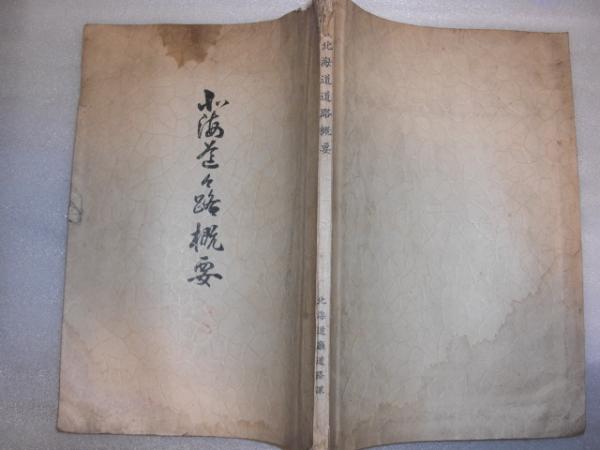 北海道々路概要
北海道道路概要
北海道廳道路課